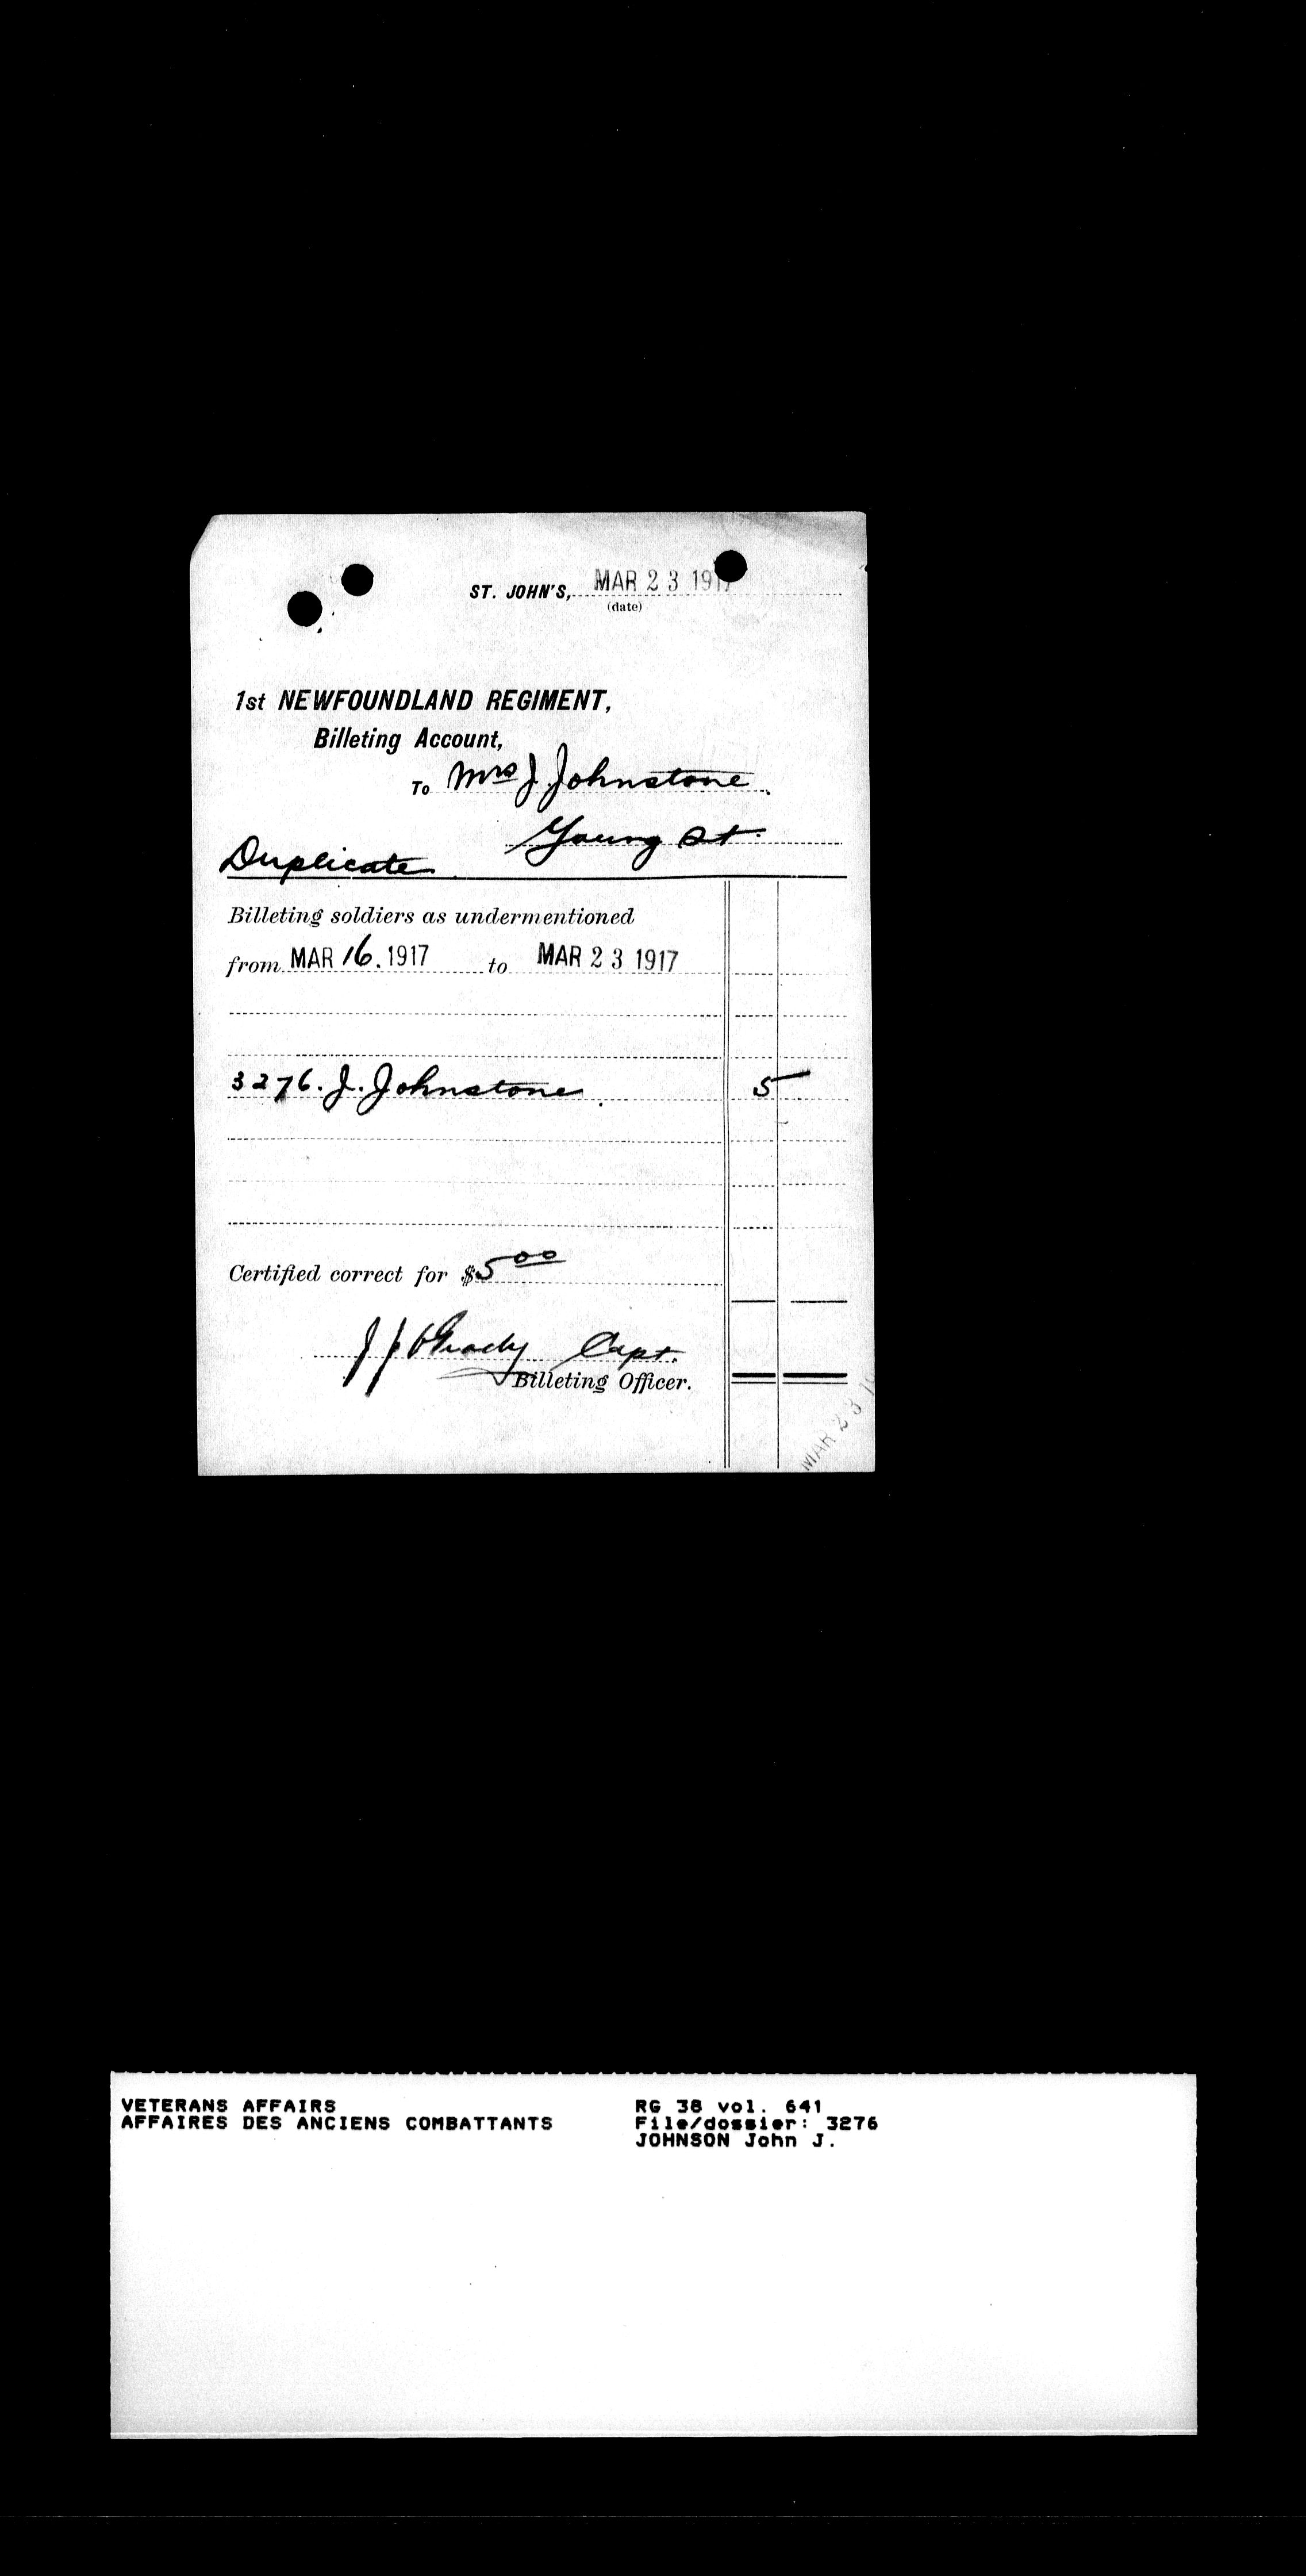 ST. JOHN'S, MAR 23 1917
(date)
1st NEWFOUNDLAND REGIMENT,
Billeting Account,
To Mrs J. Johnstone.
Young St.
Duplicate
Billeting soldiers as undermentioned
from MAR 16. 1917 to MAR 23 1917
3276. J. Johnstone. 5
Certified correct for $5 00
J J O'Grady Capt.
Billeting Officer.
MAR 23 19
VETERANS AFFAIRS RG 38 vol. 641
AFFAIRES DES ANCIENS COMBATTANTS File/dossier: 3276
JOHNSON John J.